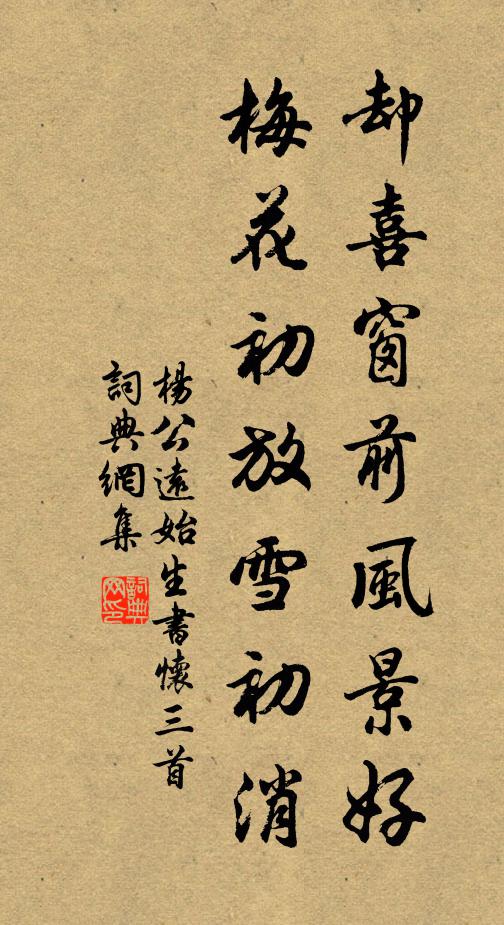 却喜窗前風景好
梅花初放雪初消
楊公遠始生書懷三首
詞典網集
詞典网印